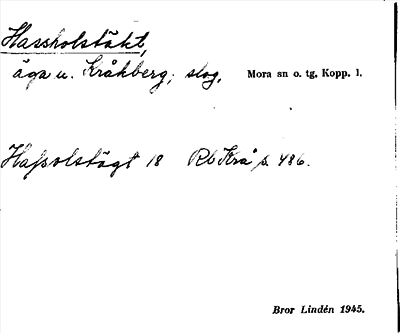 Hassholstäkt,
äga u. Kråkberg; slog, Mora sn o. tg, Kopp. l.
Hassolstägt 18 Rb Krå s. 486.
Bror Lindén 1945.